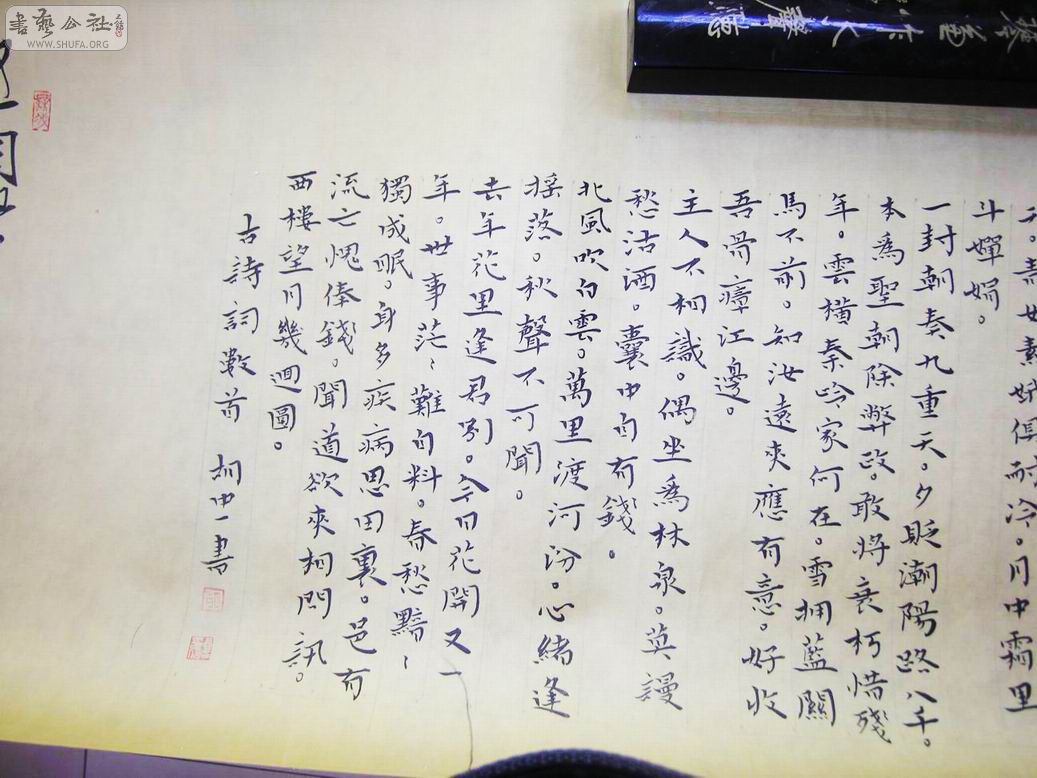 女素娥俱耐冷。月中霜里
斗嬋娟。
一封朝奏九重天。夕貶潮陽路八千。
本為聖朝除弊政。敢將衰朽惜殘
年。雲橫秦岭家何在。雪拥藍關
馬不前。知汝遠來應有意。好收
吾骨瘴江邊。
主人不相識。偶坐為林泉。莫謾
愁沽酒。囊中自有錢。
北風吹白雲。萬里渡河汾。心緒逢
搖落。秋聲不可聞。
去年花里逢君別。今日花開又一
年。世事茫〻難自料。春愁黯〻
獨成眠。身多疾病思田裏。邑有
流亡愧俸錢。聞道欲來相問訊。
西樓望月幾迴圖。
古詩詞數首 中一書
書藝公社
WWW.SHUFA.ORG